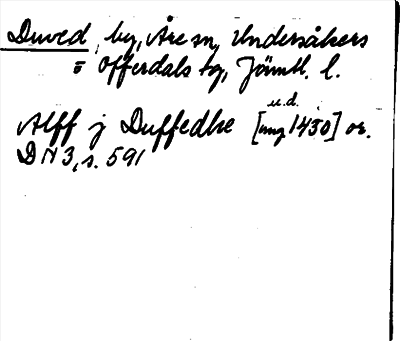 Duved, by, Åre sn, Undersåkers
o Offerdals tg, Jämtl. l.
u.d.
Alff j Duffedhe [omg 1430] or.
DN 3, s. 591